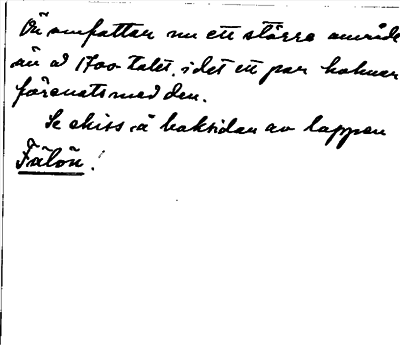 Ön omfattar nu ett större område
än å 1700-talet, i det ett par holmar
förenats med den.
Se skiss å baksidan av lappen
Fälön!